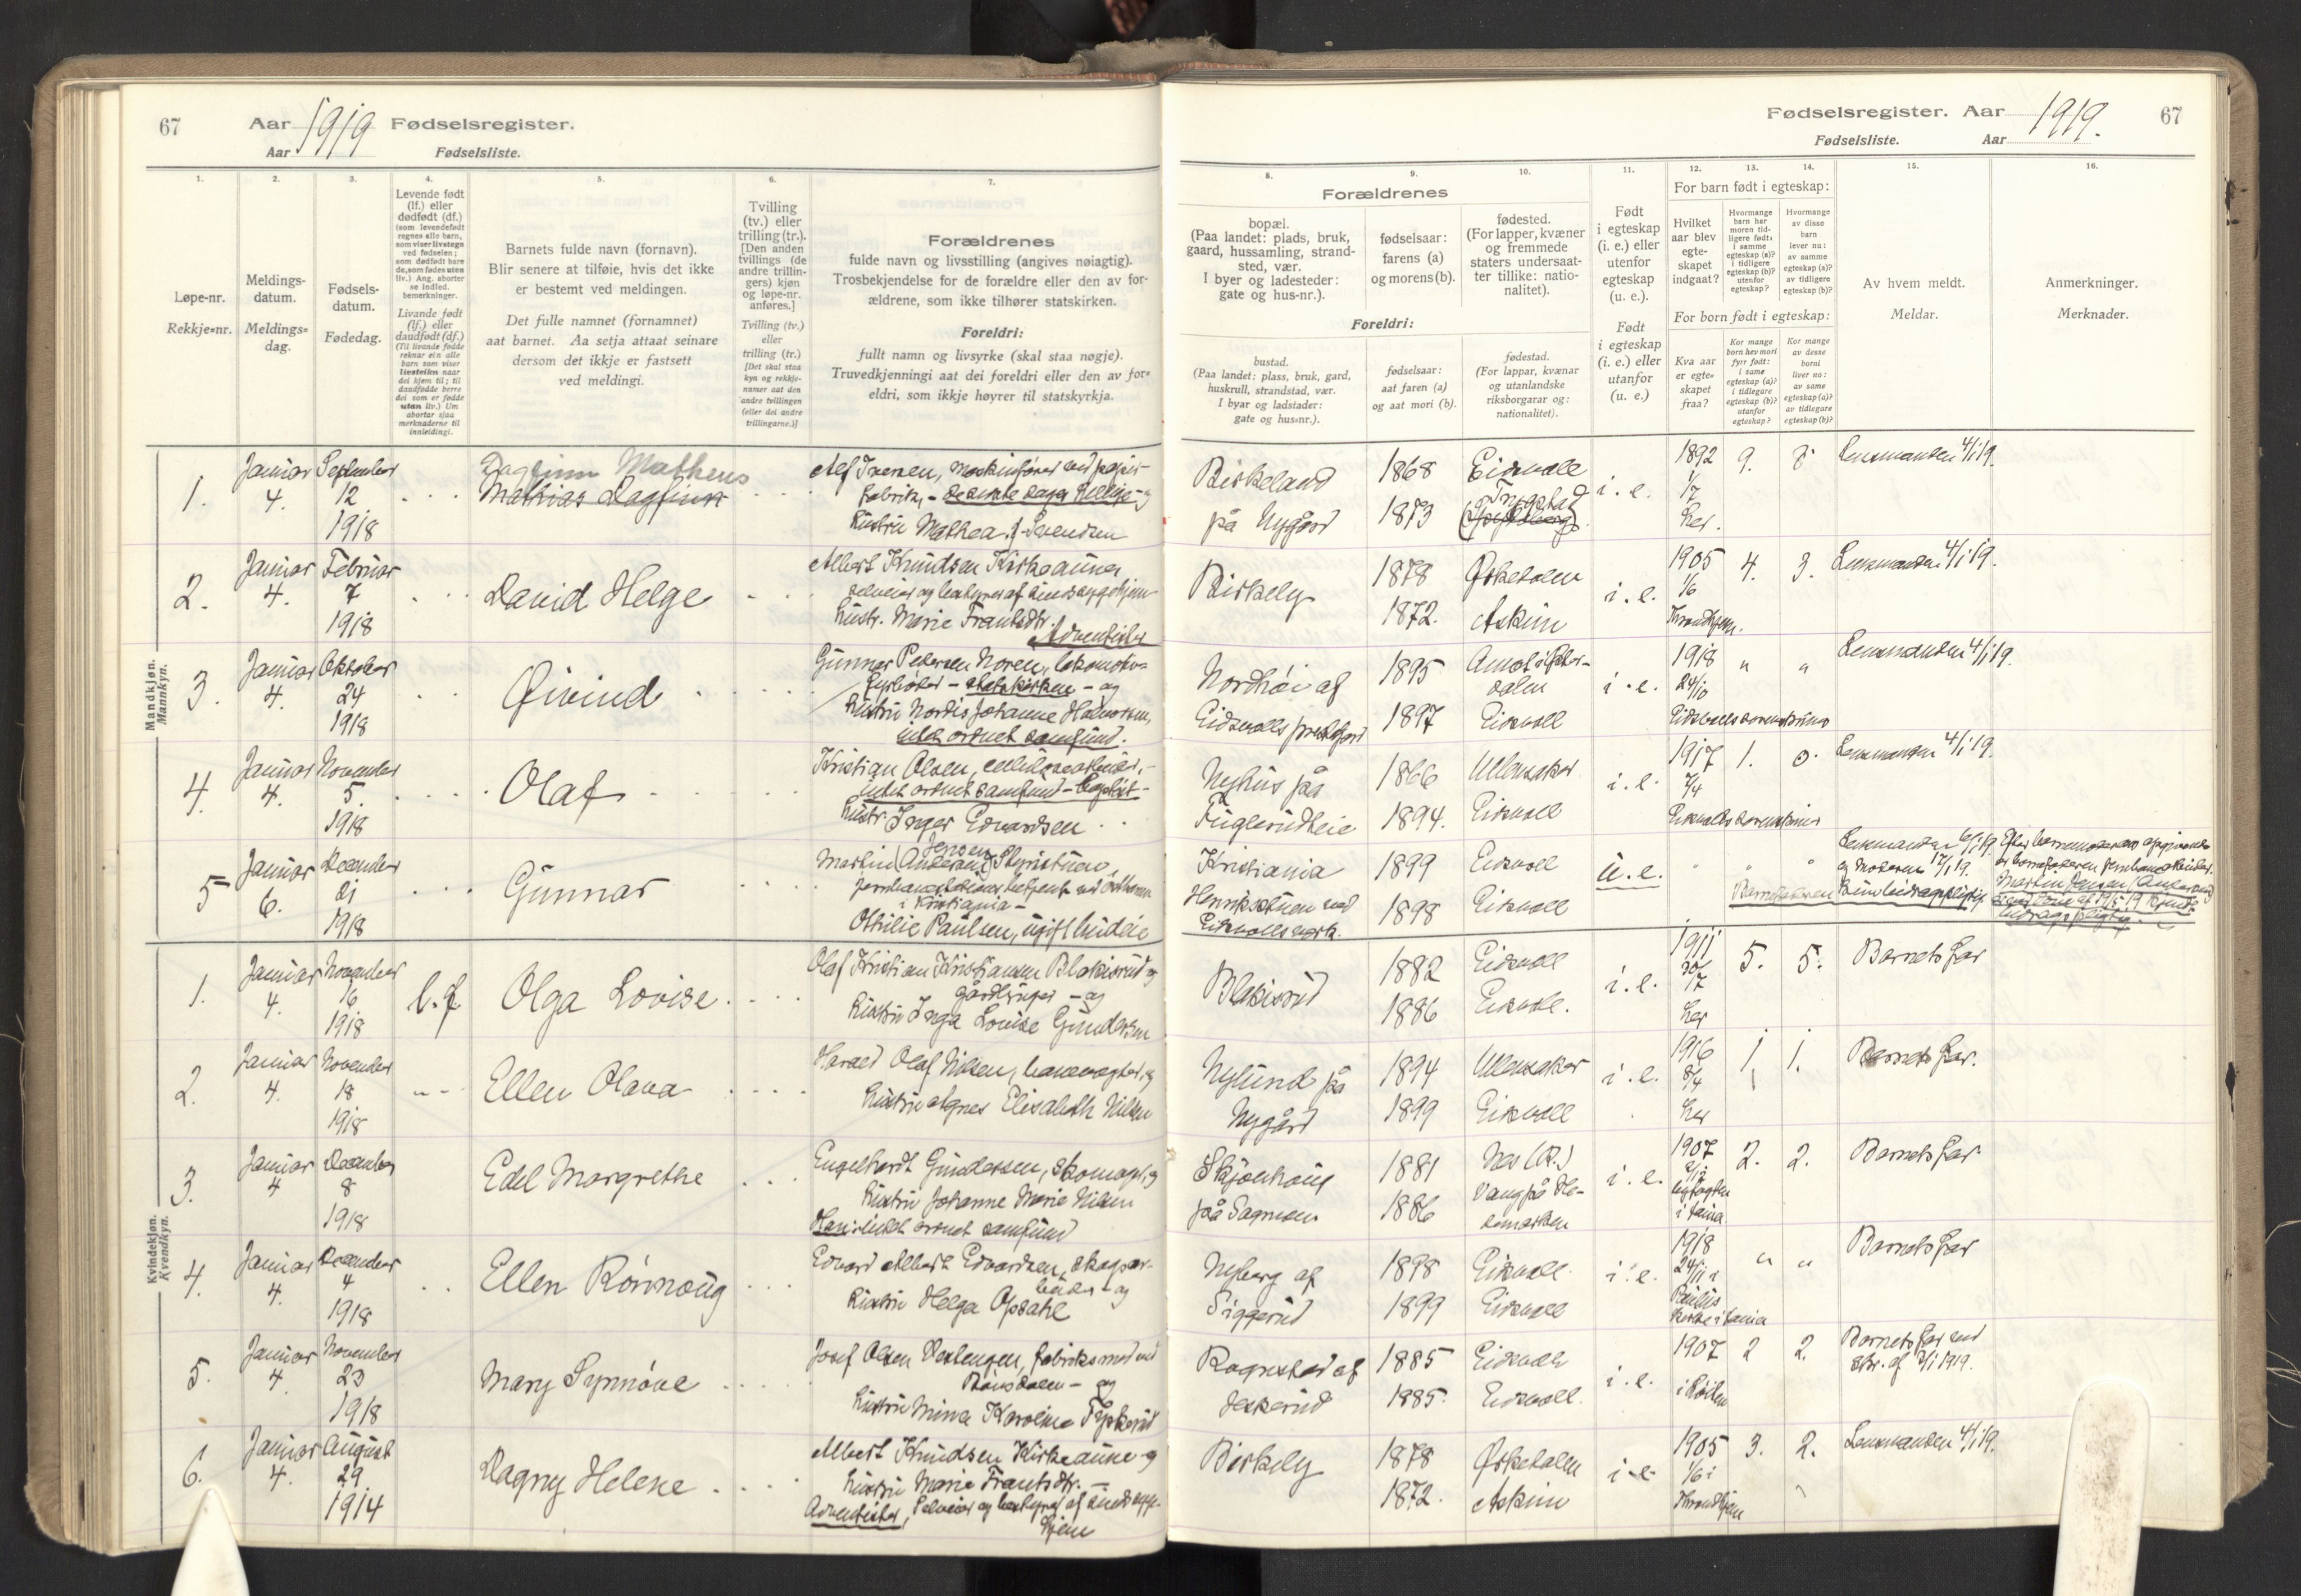 67
Aar 1919 Fødselsregister.
Aar
Fødselsliste.
1.
2.
3.
4.
5.
6.
7.
Løpe-nr.
Rekkje=nr.
Meldings-
datum.
Meldings=
dag.
Fødsels-
datum.
Fødedag.
Levende født
(lf.) eller
dødfødt (df.)
(som levendefødt
regnes alle barn,
som viser livstegn
ved fødselen;
som dødfødt bare
de, som fødes uten
liv.) Ang. aborter
se indled.
bemerkninger.
Livande født
(lf.) eller
daudfødt (df.)
(Til livande fødde
reknar ein alle
barn som viser
livsteikn naar
dei kjem til; til
daudfødde berre
dei som er fødde
utan liv.) Um
abortar sjaa
merknaderne til
innleidingi.
Barnets fulde navn (fornavn).
Blir senere at tilføie, hvis det ikke
er bestemt ved meldingen.
Det fulle namnet (fornamnet)
aat barnet. Aa setja attaat seinare
dersom det ikkje er fastsett
ved meldingi.
Tvilling
(tv.) eller
trilling (tr.).
[Den anden
tvillings (de
andre trillin-
gers) kjøn
og løpe-nr.
anføres.]
Tvilling (tv.)
eller
trilling (tr.)
[Det skal staa
kyn og rekkje-
numer aat den
andre tvillingen
(eller dei andre
trillingarne.)]
Forældrenes
fulde navn og livsstilling (angives nøiagtig).
Trosbekjendelse for de forældre eller den av for-
ældrene, som ikke tilhører statskirken.
Foreldri:
fullt namn og livsyrke (skal staa nøgje).
Truvedkjenningi aat dei foreldri eller den av for=
eldri, som ikkje høyrer til statskyrkja.
Mandkjøn.
Mannkyn.
1.
Januar
4.
September
12
1918
Dagfinn Matheus
Mathias Dagfinn
Alf Iversen, maskinfører ved papir-
fabrik, - de sidste dages hellige - og
Hustru Mathea Svendsen
2.
Januar
4.
Februar
7
1918
David Helge
Albert Knudsen Kirkeaune
selveier og bestyrer af sindssygehjem
Hustr. Marie Frantsdtr.
Adventister
3.
Januar
4.
Oktober
24
1918
Øivind
Gunnar Pedersen Noren, lokomotiv=
fyrbøter - statskirken - og
Hustru Nordis Johanne Halvorsen,
intet ordnet samfund.
4.
Januar
4.
November
5.
1918
Olaf
Kristian Olsen,
intet ordnet samfund - baptist -
Hustr. Inger Edvardsen
5
Januar
6.
December
21
1918
Gunnar
Jensen
Martin (Andersen)
i Kristiania -
Othilie Paulsen, ugift budeie
Kvindekjøn.
Kvendkyn.
1.
Januar
4.
November
16
1918
l.f.
Olga Lovise
Olaf Kristian Kristiansen Blakisrud
gårdbruger - og
Hustru Inga Louise Gundersen
2.
Januar
4.
November
18
1918
Ellen Olava
Harald Olaf Nilsen, banevogter, og
Hustru Agnes Elisabeth Nilsen
3.
Januar
4
December
8
1918
Edel Margrethe
Engelhardt Gundersen, skomager, og
Hustru Johanne Marie Nilsen
Han: intet ordnet samfund
4.
Januar
4.
December
4
1918
Ellen Rönnoug
Edvard Albert Edvardsen, skogsar-
beider - og
Hustru Helga Opsahl
5.
Januar
4.
November
23
1918
Mary Synnöve
Josef Olsen Vestengen, fabriksmed ved
Bönsdalen - og
Hustru Mina Karoline
6.
Januar
4.
August
29
1914
Dagny Helene
Albert Knudsen Kirkeaune og
Hustru Marie Frantsdtr. -
Adventister, Selveier og bestyrer af sindssyge-
hjem
Fødselsregister. Aar 1919.
67
Fødselsliste.
Aar
8.
9.
10.
11.
12.
13.
14.
15.
16.
Forældrenes
bopæl.
(Paa landet: plads, bruk,
gaard, hussamling, strand-
sted, vær.
I byer og ladesteder:
gate og hus-nr.).
fødselsaar:
farens (a)
og morens (b).
fødested.
(For lapper, kvæner
og fremmede
staters undersaat-
ter tillike: natio-
nalitet).
Foreldri:
bustad.
(Paa landet: plass, bruk, gard,
huskrull, strandstad, vær.
I byar og ladstader:
gate og hus=nr.).
fødselsaar:
aat faren (a)
og aat mori (b).
fødestad.
(For lappar, kvænar
og utanlandske
riksborgarar og:
nationalitet).
Født
i egteskap
(i. e.) eller
utenfor
egteskap
(u. e.).
Født
i egteskap
(i. e.) eller
utanfor
(u. e.)
For barn født i egteskap:
Hvilket
aar blev
egte-
skapet
indgaat?
Hvormange
barn har
moren tid-
ligere født:
i samme
egteskap (a)?
i tidligere
egteskap (b)?
utenfor
egteskap?
Hvormange
av disse
barn
lever nu:
av samme
egteskap (a)?
av tidligere
egteskap (b)?
For born født i egteskap:
Kva aar
er egte=
skapet
fraa?
Kor mange
born hev mori
fyrr født:
i same
egteskap (a)?
i tidlegare
egteskap (b)?
utanfor
egteskap?
Kor mange
av desse
borni
liver no:
av same
egteskap (a)?
av tidlegare
egteskap (b)?
Av hvem meldt.
Meldar.
Anmerkninger.
Merknader.
Birkeland
på Nygård
1868
1873
Eidsvoll
Trøgstad
i. e.
1892
1/7
her.
9.
8
Lensmanden 4/1 19.
Birkely
1878
1872.
Ørkedalen
Askim
i. e.
1905
1/6
Throndhjem.
4.
3.
Lensmanden 4/1 19.
Nordhöi af
Eidsvolls prestegård
1895
1897
Åmot i Øster-
dalen
Eidsvoll
i. e.
1918
24/10
Eidsvolls sorenskriver
"
"
Lensmanden 4/1 19.
Nyhus på
Fuglerudeie
1866
1894.
Ullensaker
Eidsvoll
i. e.
1917
7/4
Eidsvolls sorenskriver
1.
0.
Lensmanden 4/1 19.
Kristiania
Henrikstuen ved
Eidsvolls verk.
1899
1898
Eidsvoll
Eidsvoll
u. e.
"
"
Lensmanden 6/1 19.
og moderen 17/1 19.
Barnefaderen
Blakisrud
1882
1886
Eidsvoll
Eidsvoll.
i. e.
1911
30/7
her
5.
5.
Barnets far
Nylund på
Nygård
1894
1899
Ullensaker
Eidsvoll
i. e.
1916
8/4
her
1
1.
Barnets far.
Skjönhaug
på Sagmoen
1881
1886
Nes (R.)
Vang på He-
demarken
i. e.
1907
byfogden
i Kania
2.
2.
Barnets far
Nyborg af
Siggerud
1898
1899
Eidsvoll
Eidsvoll
i. e.
1918
24/11 i
Paulus
kirke i Kania
"
"
Barnets far
Ragnestad af
Jeskerud
1885
1885.
Eidsvoll
Eidsvoll.
i. e.
1907
2
2.
Barnets far ved
skr. af 2/1 1919.
Birkely
1878
1872.
Ørkedalen
Askim
i e
1905
1/6 i
Throndhjem
3.
2.
Lensmanden 4/1 19.